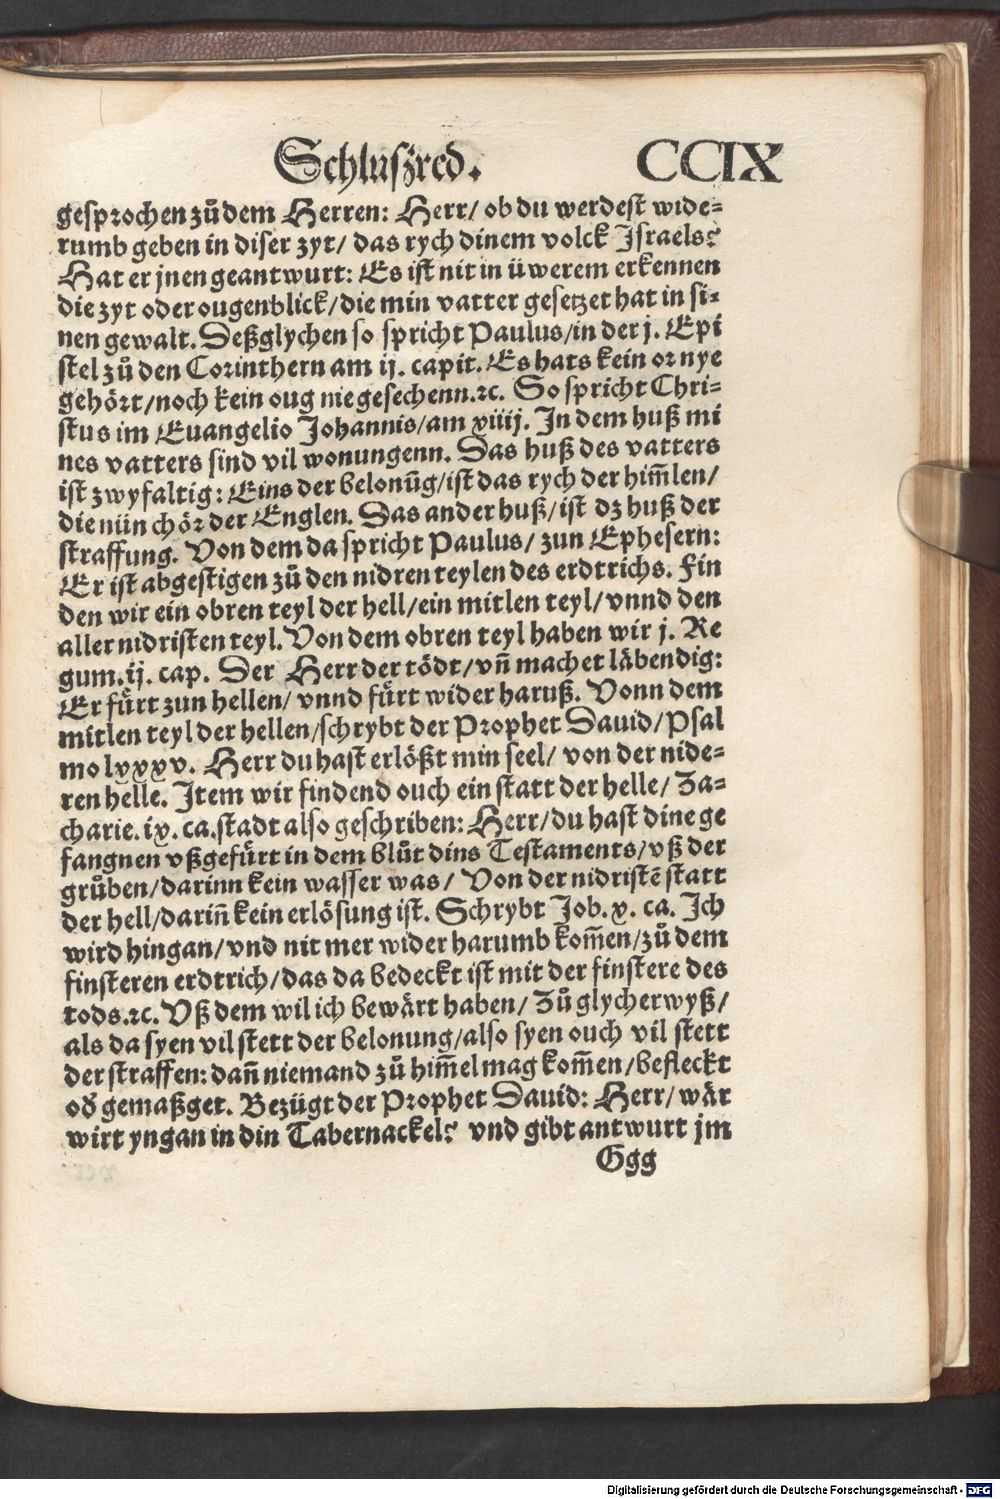 Schluszred. CCIX
gesprochen zů dem Herren: Herr/ ob du werdest wide-
rumb geben in diser zyt/ das rych dinem volck Israels?
Hat er jnen geantwurt: Es ist nit in üwerem erkennen
die zyt oder ougenblick/ die min vatter gesetzet hat in si-
nen gewalt. Deßglychen so spricht Paulus/ in der j. Epi
stel zů den Corinthern am ij. capit. Es hats kein or nye
gehört/ noch kein oug nie gesechenn.⁊c. So spricht Chri-
stus im Euangelio Johannis/ am xiiij. In dem huß mi
nes vatters sind vil wonungenn. Das huß des vatters
ist zwyfaltig: Eins der belonūg/ ist das rych der him̄len/
die nün chör der Englen. Das ander huß/ ist dz huß der
straffung. Von dem da spricht Paulus/ zun Ephesern:
Er ist abgestigen zů den nidren teylen des erdtrichs. Fin
den wir ein obren teyl der hell/ ein mitlen teyl/ vnnd den
aller nidristen teyl. Von dem obren teyl haben wir j. Re
gum. ij. cap. Der Herr der tödt/ vn̄ machet läbendig:
Er fürt zun hellen/ vnnd fürt wider haruß. Vonn dem
mitlen teyl der hellen/ schrybt der Prophet Dauid/ Psal
mo lxxxv. Herr du hast erlößt min seel/ von der nide-
ren helle. Item wir findend ouch ein statt der helle/ Za-
charie. ix. ca. stadt also geschriben: Herr/ du hast dine ge
fangnen vßgefürt in dem blůt dins Testaments/ vß der
grůben/ darinn kein wasser was/ Von der nidristē statt
der hell/ darin̄ kein erlösung ist. Schrybt Job. x. ca. Ich
wird hingan/ vnd nit mer wider harumb kom̄en/ zů dem
finsteren erdtrich/ das da bedeckt ist mit der finstere des
tods.⁊c. Vß dem wil ich bewärt haben/ Zů glycher wyß/
als da syen vil stett der belonung/ also syen ouch vil stett
der straffen: dan̄ niemand zů him̄el mag kom̄en/ befleckt
od̓ gemaßget. Bezügt der Prophet Dauid: Herr/ wär
wirt yngan in din Tabernackel? vnd gibt antwurt jm
Ggg
Digitalisierung gefördert durch die Deutsche Forschungsgemeinschaft - DFG